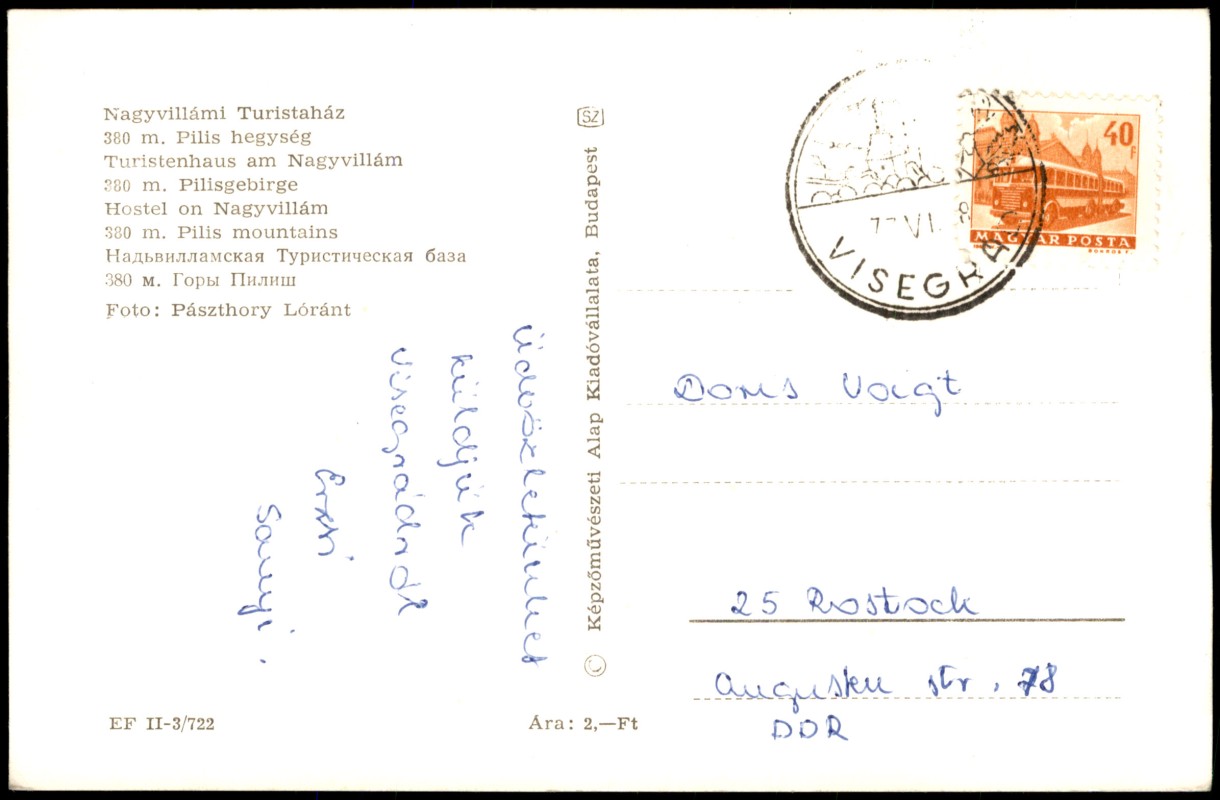 Nagyvillámi Turistaház
380 m. Pilis hegység
Turistenhaus am Nagyvillám
380 m. Pilisgebirge
Hostel on Nagyvillám
380 m. Pilis mountains
Надьвилламская Туристическая база
380 м. Горы Пилиш
Foto: Pászthory Lóránt
Üdvözletünket
küldjük
Visegrádról
Erzsi
Sanyi.
EF II-3/722
Ára: 2,—Ft
© Képzőművészeti Alap Kiadóvállalata, Budapest
SZ
VISEGRÁ
40 F
MAGYAR POSTA
Doris Voigt
25 Rostock
str. 78
DDR